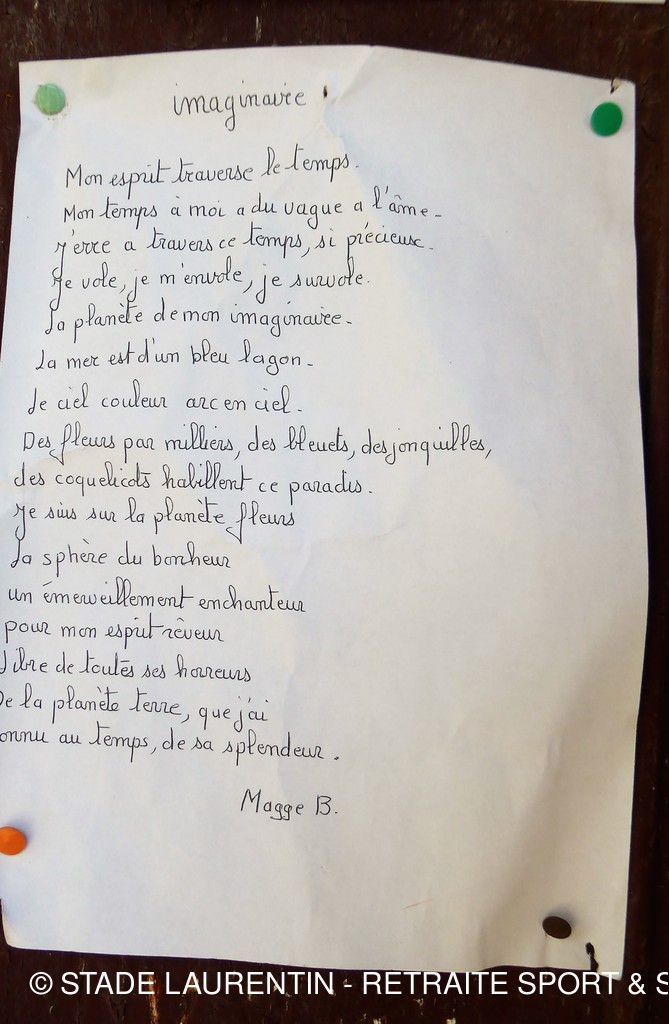 imaginaire
Mon esprit traverse le temps.
Mon temps à moi a du vague a l'âme.
J'erre a travers ce temps, si précieux.
Je vole, je m'envole, je survole.
La planète de mon imaginaire.
La mer est d'un bleu lagon.
Le ciel couleur arc en ciel.
Des fleurs par milliers, des bleuets, des jonquilles,
des coquelicots habillent ce paradis.
Je suis sur la planète fleurs
La sphère du bonheur
un émerveillement enchanteur
pour mon esprit rêveur
Libre de toutes ses horreurs
De la planète terre, que j'ai
onnu au temps, de sa splendeur.
Magge B.
© STADE LAURENTIN - RETRAITE SPORT & S